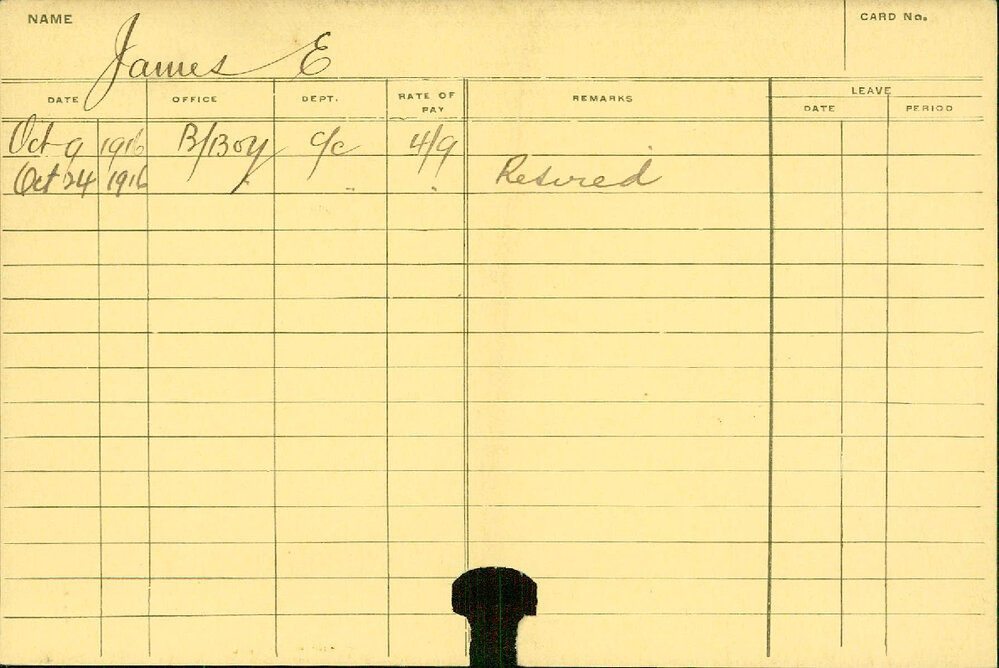 NAME James E CARD No.
DATE OFFICE DEPT. RATE OF PAY REMARKS LEAVE
DATE PERIOD
Oct 9 1916 B/Boy c/c 4/9
Oct 24 1916 " " " Retired